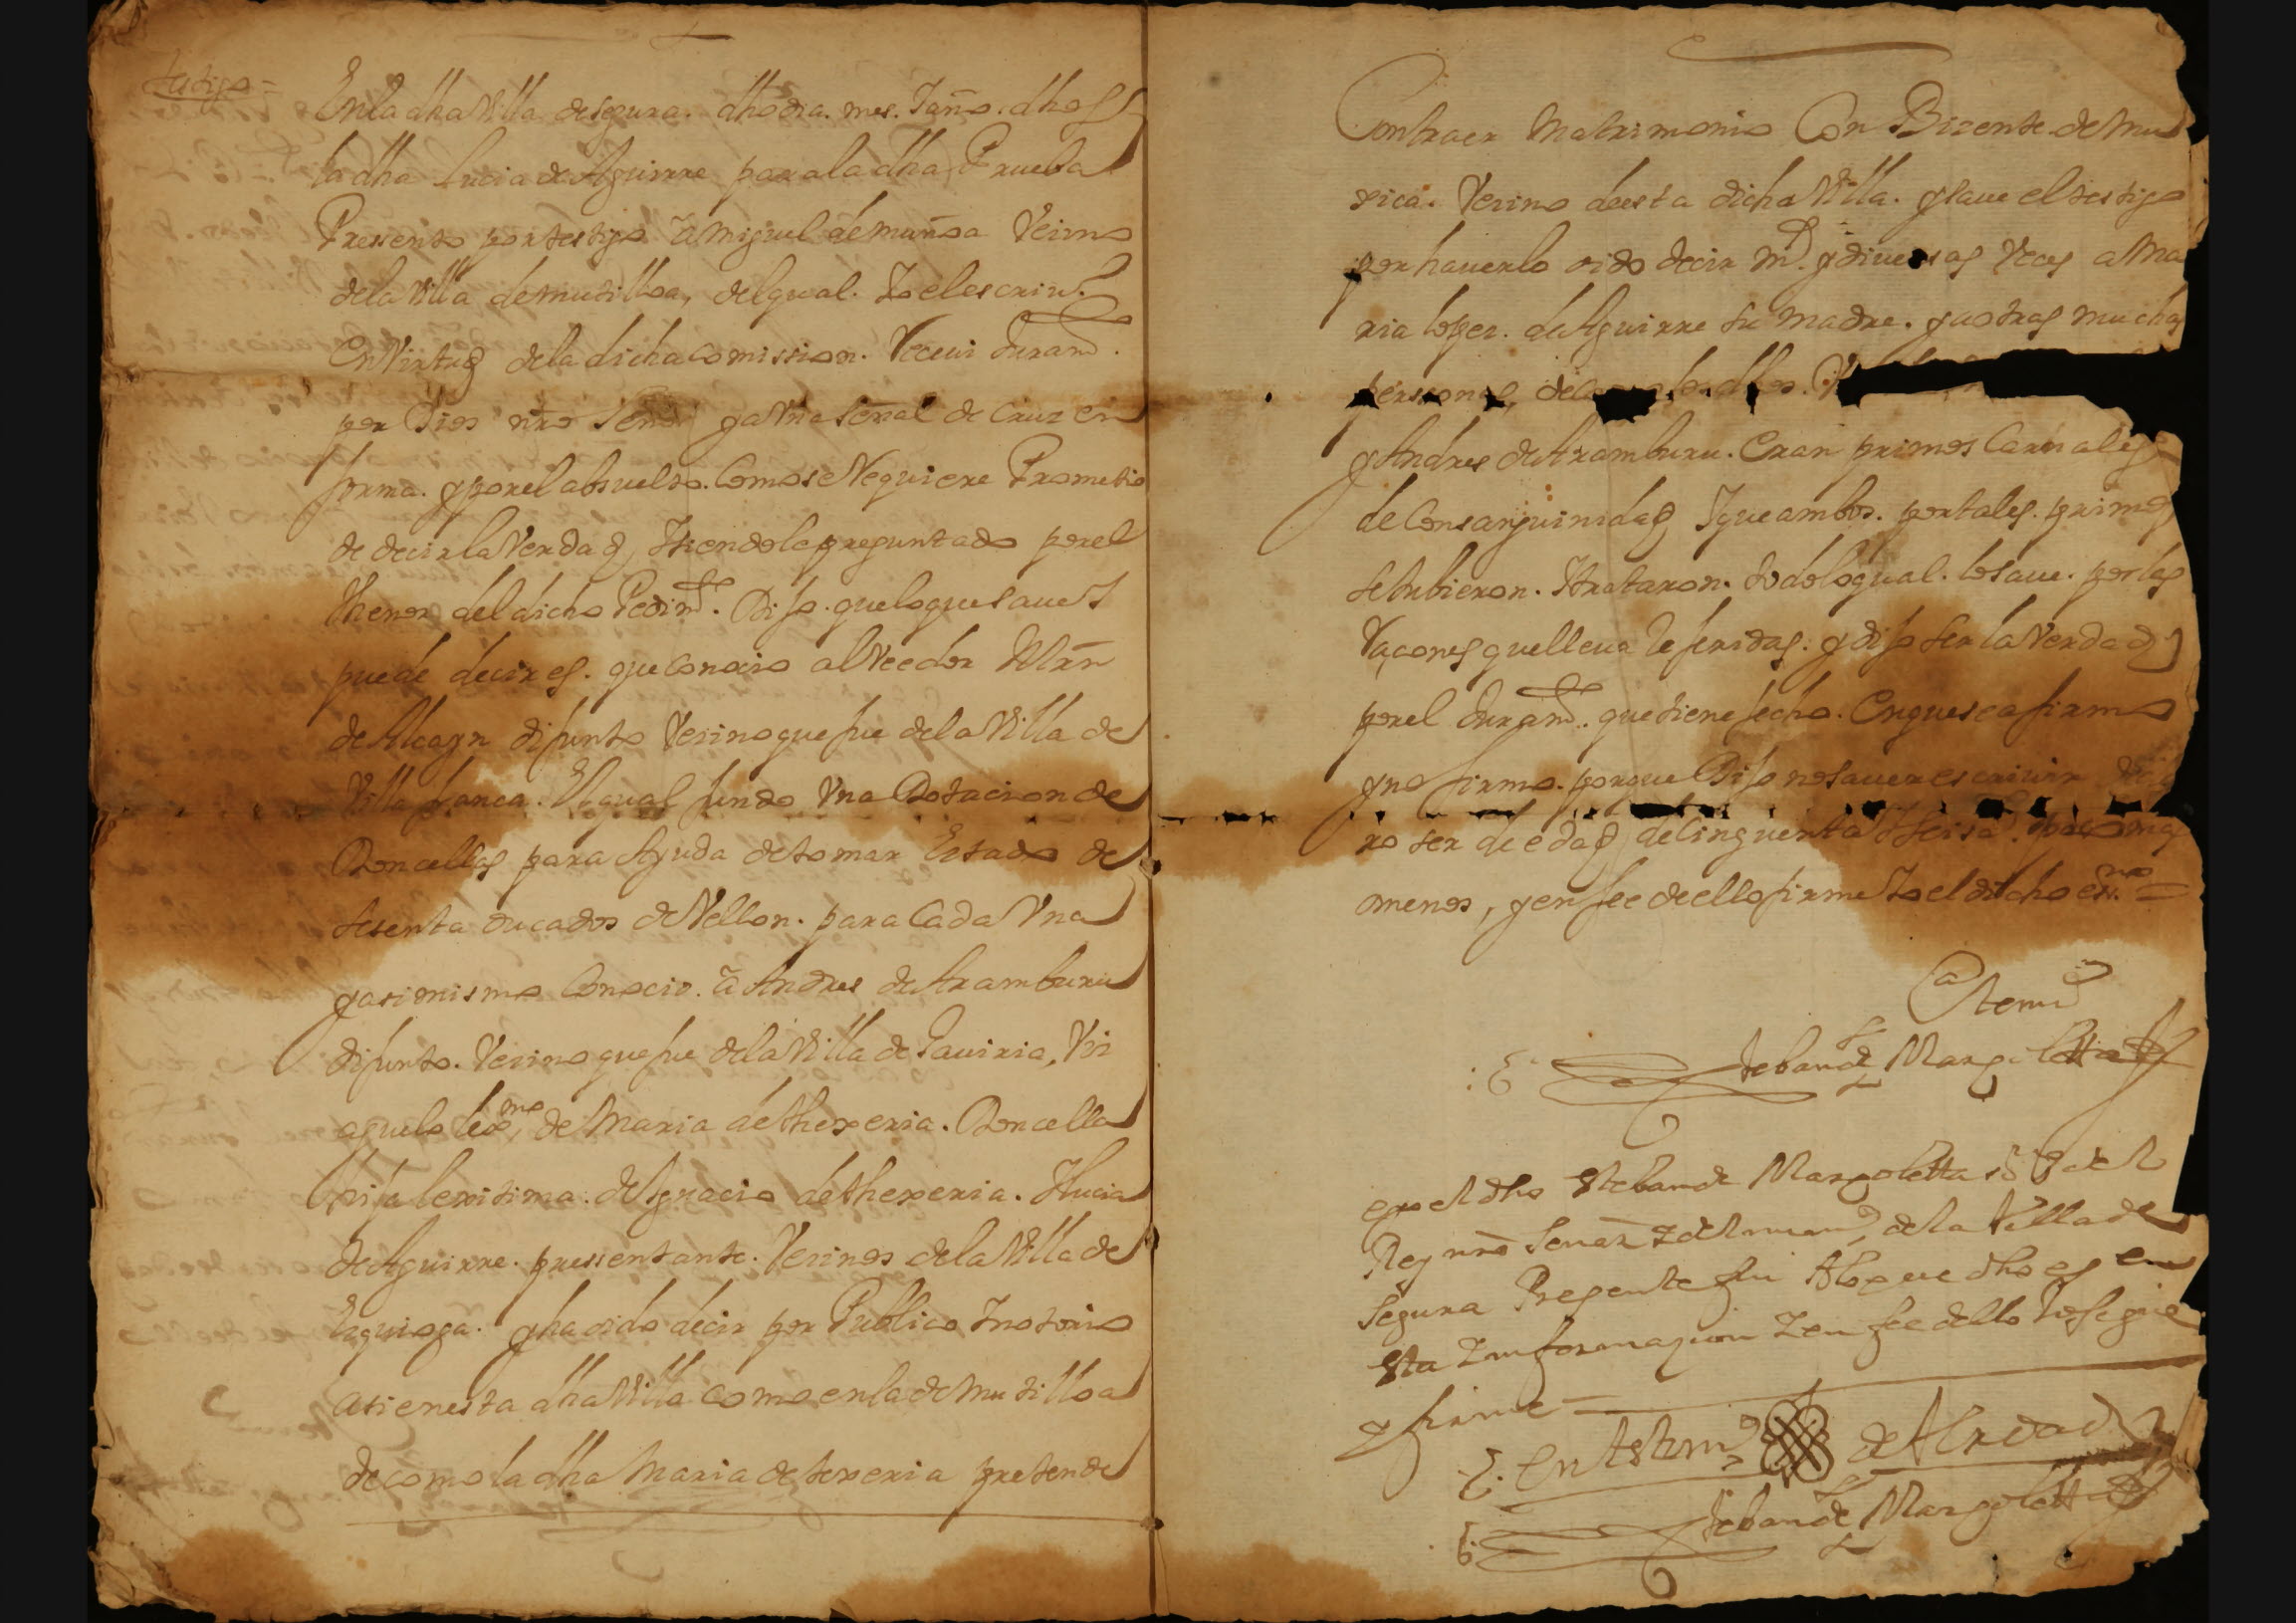 testigo =
En la dha Villa de segura. dho dia. mes. Y año. dhos
la dha Lucia de Aguirre para la dha Prueba
Pressento por testigo â Miguel de muñoa Vecino
de la Villa de mutilloa, del qual. Yo el escriu.º
En Virtud de la dicha comission. Receui Juram.to
por Dios nro Señor y a Vna señal de Cruz en
forma. y por el absuelto. Como se Requiere Prometio
de decir la Verdad, Y siendole preguntado por el
thenor del dicho Pedim.to. Dijo. que lo que saue Y
puede decir es. que Conocio al Veedor Mrn
de Alcayn difunto Vecino que fue de la Villa de
Villa franca. El qual fundo Vna Dotacion de
Doncellas para Ayuda de tomar Estado de
sesenta ducados de Vellon. para Cada Vna
y asimismo Conocio. â Andres de Aramburu
difunto. Vecino que fue de la Villa de Gauiria, Vis
aguelo lexmo, de Maria de thexeria. Doncella
hija lexitima. de Ygnacio de thexeria. Y Lucia
de Aguirre. pressentante. Vecinos de la Villa de
Ezquioga. y ha oido decir por Publico Y notorio
asi en esta dha Villa como en la de Mutilloa
de como la dha Maria de texeria pretende
Contraer Matrimonio Con Bizente de Mu
xica. Vecino de esta dicha Villa. y saue el testigo
por hauerlo oido decir m.to y diuersas Veces a Ma
ria lopez. de Aguirre su madre. y a otras muchas
personas, de
y Andres de Aramburu. Eran primos Carnales
de Consanguinidad, Y que ambos. por tales. primos
se tubieron. Y trataron. todo lo qual. lo saue. por las
Raçones que lleua Referidas. y dijo ser la Verdad
por el Juram.to. que tiene fecho. En que se afirmo
y no firmo. porque Dijo no sauer escriuir
ro ser de edad de Cinquenta Y seis a.s poco mas
menos, y en fee de ello firme Yo el dicho essno =
Ante mi
Steban de Margoletta
e yo el dho Steban de Margoletta ssno del
Rey nro Señor Y del num.o, de la Villa de
Segura Presente fui A lo que dho es en
Sta Ynformazion Y en fee dello
Y firme
En testim.o de Verdad
Steban de Margoletta